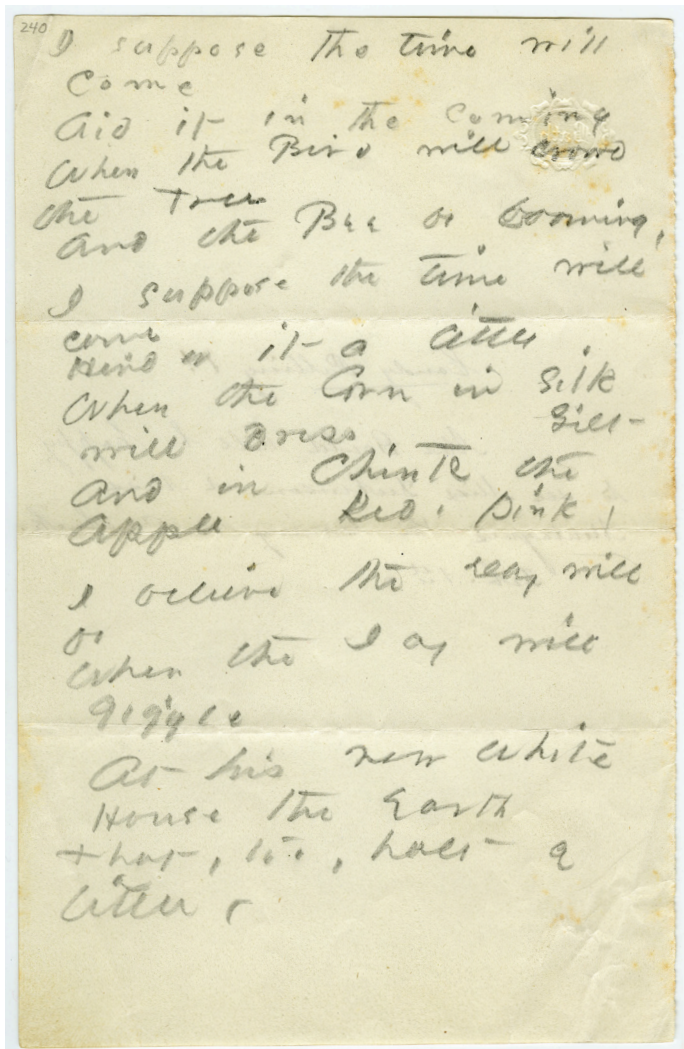 240
I suppose the time will
come
Aid it in the coming
When the Bird will crowd
the Tree
And the Bee be booming,
I suppose the time will
come
Hinder it a little
When the Corn in Silk
will Dress
And in Chintz the
Apple Red, Pink,
I believe the Day will
be
When the Jay will
giggle
At his new white
House the Earth
That, too, halt a
little,